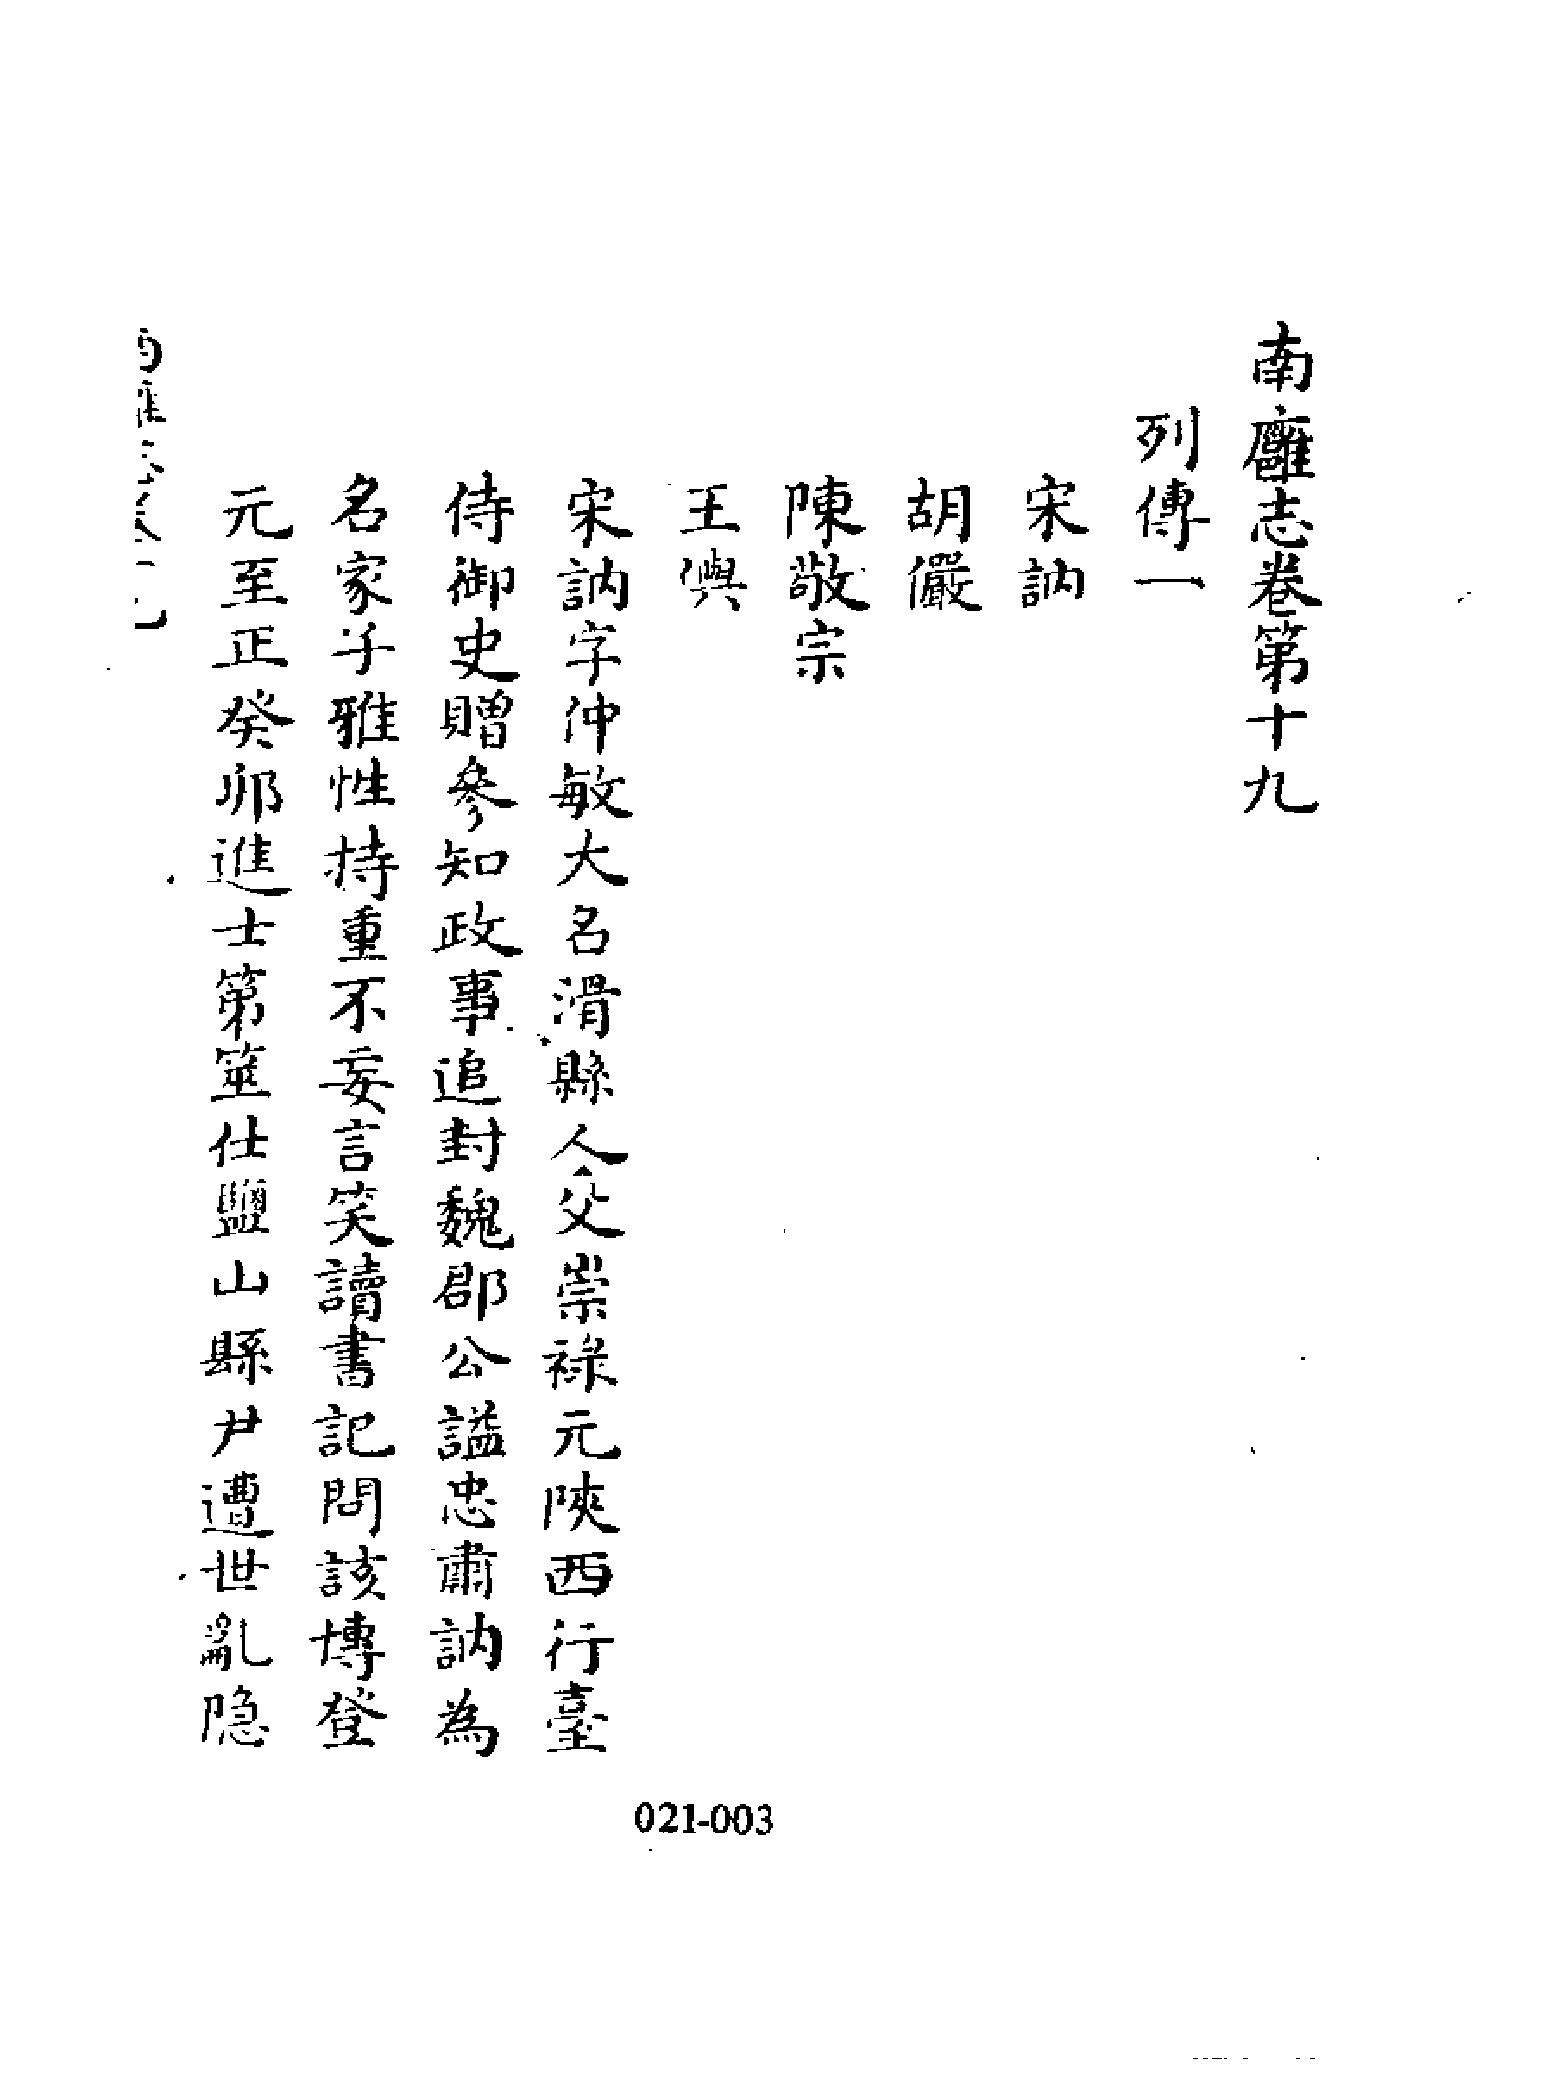 南廱志卷第十九
列傳一
宋訥
胡儼
陳敬宗
王㒜
宋訥字仲敏大名滑縣人父崇祿元陝西行臺
侍御史贈參知政事追封魏郡公謚忠肅訥為
名家子雅性持重不妄言笑讀書記問該博登
元至正癸卯進士第筮仕鹽山縣尹遭世亂隐
021-003